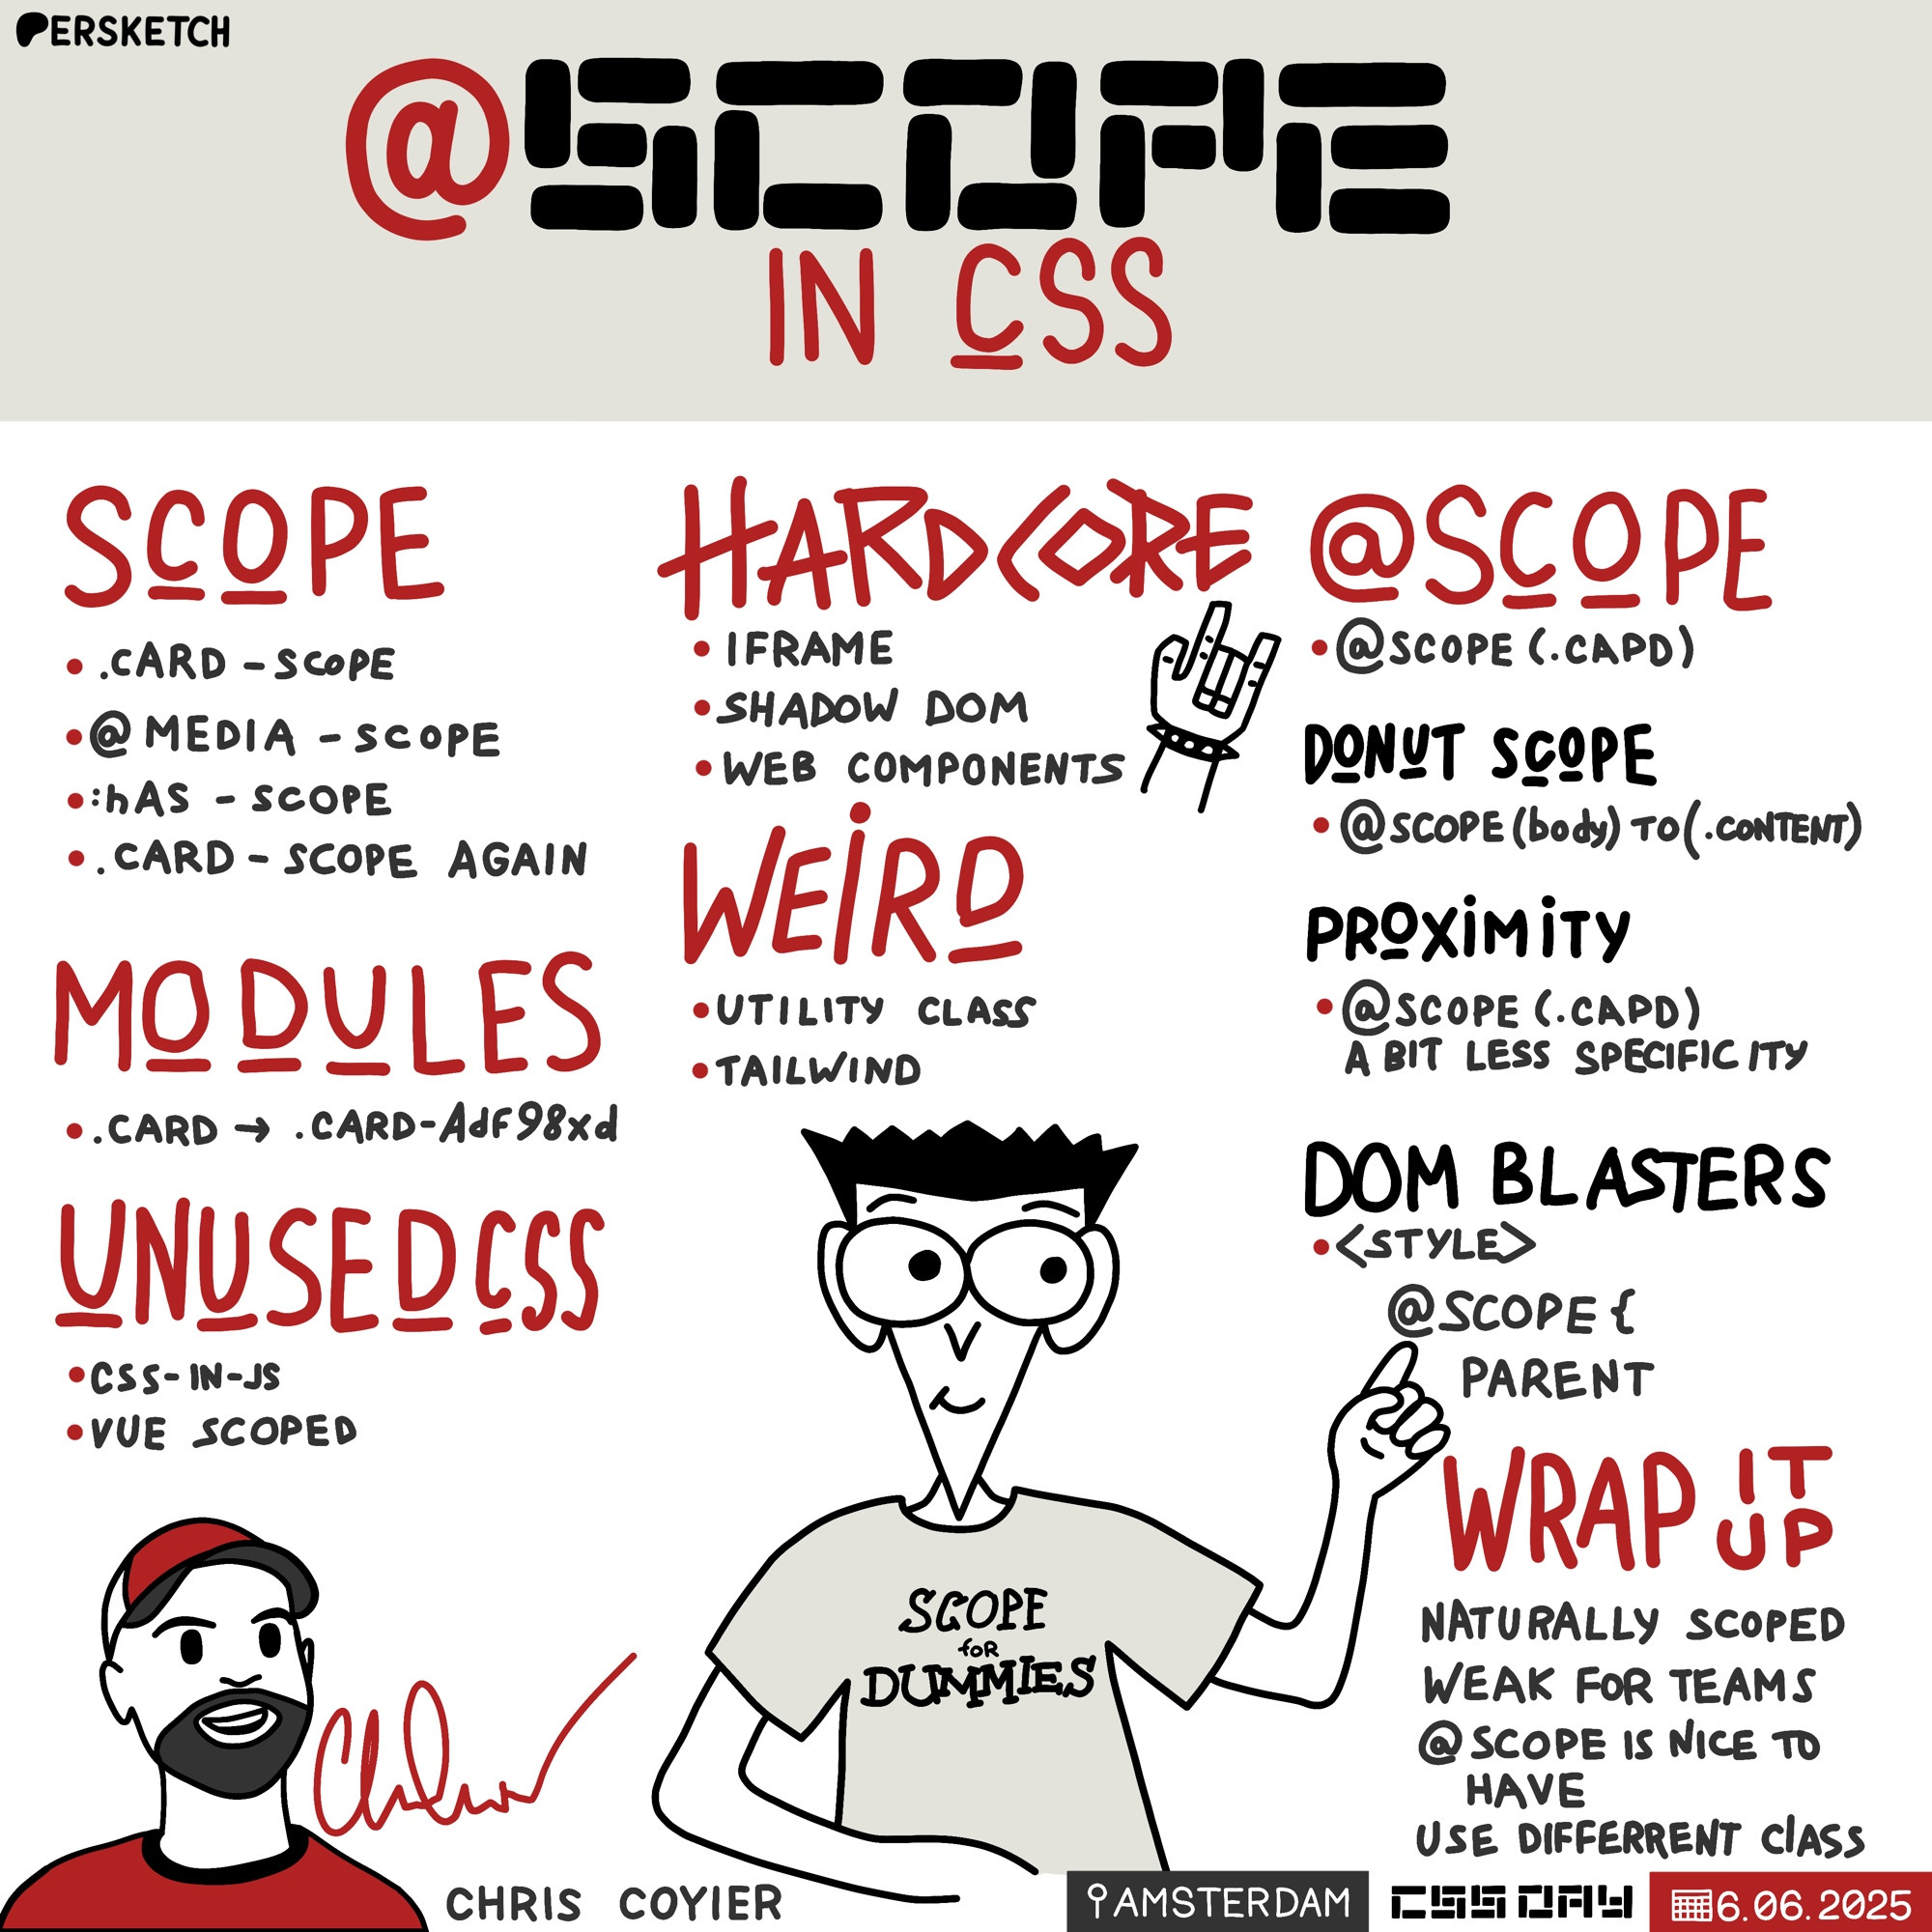 PERSKETCH
@SCOPE
IN CSS
SCOPE
.CARD - SCOPE
@MEDIA - SCOPE
:hAS - SCOPE
.CARD - SCOPE AGAIN
MODULES
.CARD → .CARD-Adf98xd
UNUSED CSS
CSS-IN-JS
VUE SCOPED
HARDCORE
IFRAME
SHADOW DOM
WEB COMPONENTS
WEIRD
UTILITY CLASS
TAILWIND
@SCOPE
@SCOPE (.CAPD)
DONUT SCOPE
@SCOPE (body) TO (.CONTENT)
PROXIMITY
@SCOPE (.CAPD)
A BIT LESS SPECIFICITY
DOM BLASTERS
<STYLE>
@SCOPE {
PARENT
WRAP IT UP
NATURALLY SCOPED
WEAK FOR TEAMS
@SCOPE IS NICE TO
HAVE
USE DIFFERRENT ClASS
SCOPE
foR
DUMMIES
CHRIS COYIER
AMSTERDAM
CSS DAY
6.06.2025